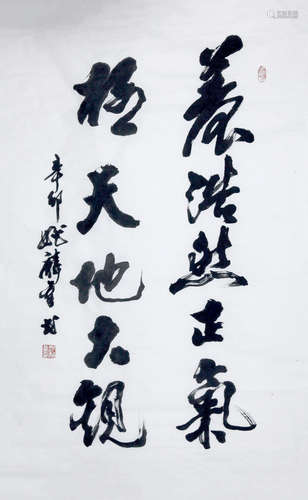 養浩然正氣
極天地大觀
辛卯